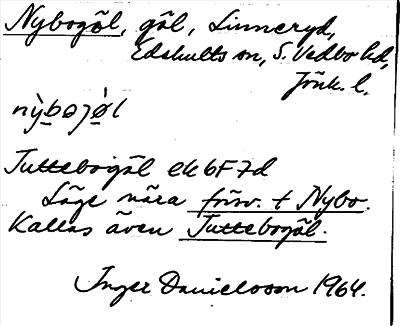 Nybogöl, göl, Linneryd,
Edshults sn, S. Vedbo hd,
Jönk. l.
nỳbo̱jø̱̀l
Juttebogöl ek 6F7d
Läge nära förv. t Nybo.
Kallas även Juttebogöl.
Inger Danielsson 1964.